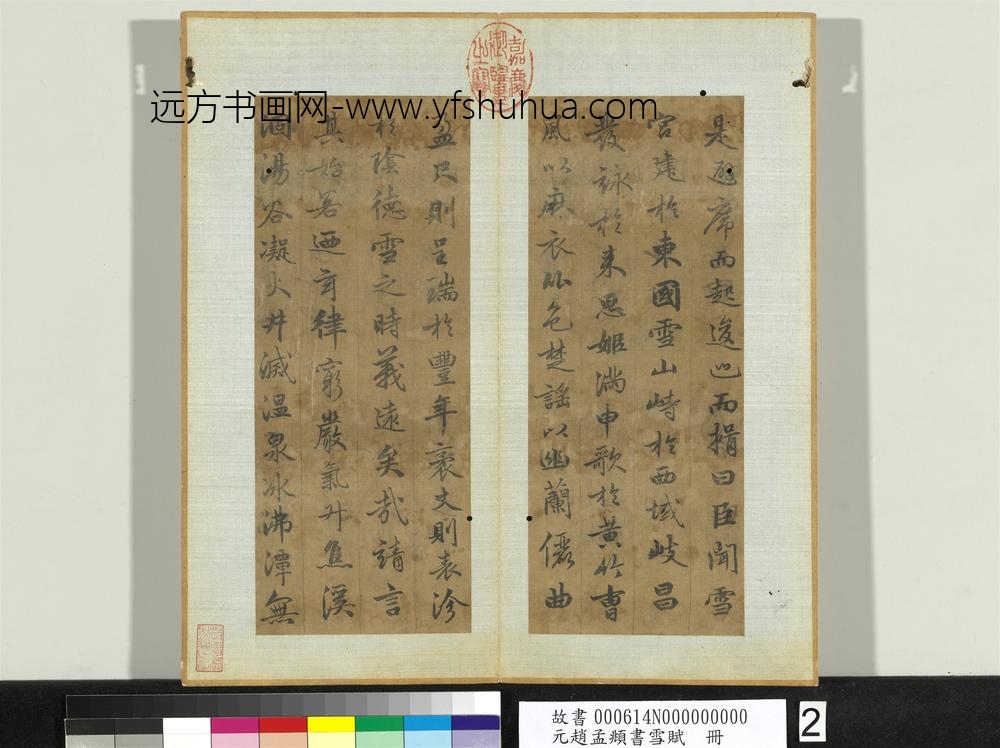 嘉慶御覽之寶
远方书画网-www.yfshuhua.com
是避席而起逡巡而揖曰臣聞雪
宮建於東國雪山峙於西域岐昌
發詠於来思姬滿申歌於黃竹曹
風以麻衣比色楚謠以幽蘭儷曲
盈尺則呈瑞於豐年袤丈則表沴
於陰德雪之時義遠矣哉請言
其始若迺玄律窮嚴氣升焦溪
涸湯谷凝火井滅溫泉冰沸潭無
故書 000614N000000000
元趙孟頫書雪賦 冊
2